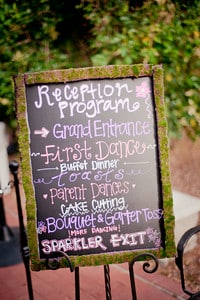 Reception
Program
Grand Entrance
First Dance
Buffet Dinner
Toasts
Parent Dances
Cake Cutting
Bouquet & Garter Toss
(MORE DANCING!)
SPARKLER EXIT